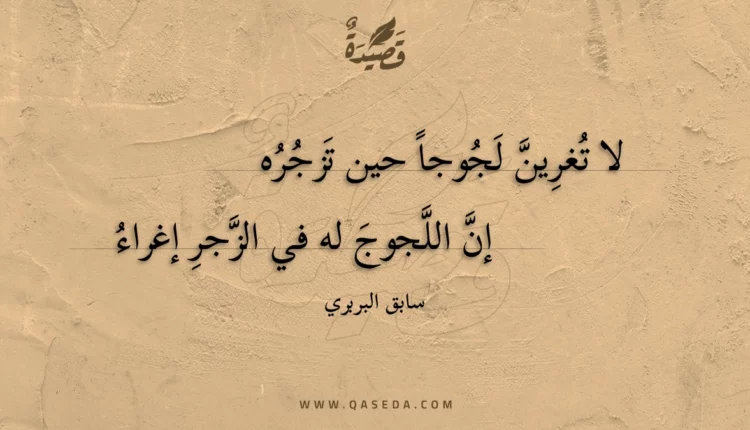 قَصِيدَةٌ
لا تُغرِينَّ لَجُوجاً حين تَزجُرُه
إنَّ اللَّجوجَ له في الزَّجرِ إغراءُ
سابق البربري
WWW.QASEDA.COM